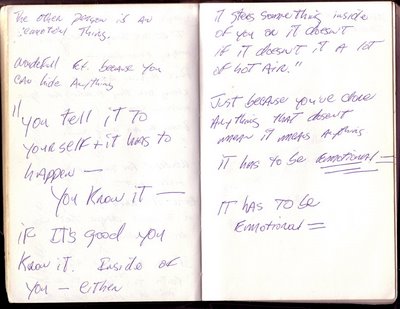 The other person is an
emotional thing.
wonderful Ex. because you
can hide Anything
"you tell it to
yourself + it has to
happen —
You Know it —
if It's good you
Know it. Inside of
you — either
it stirs something inside
of you or it doesn't
if it doesn't it a lot
of hot Air."
Just because you've done
Anything that doesn't
mean it means Anything
it has to be emotional =
IT HAS TO be
Emotional =